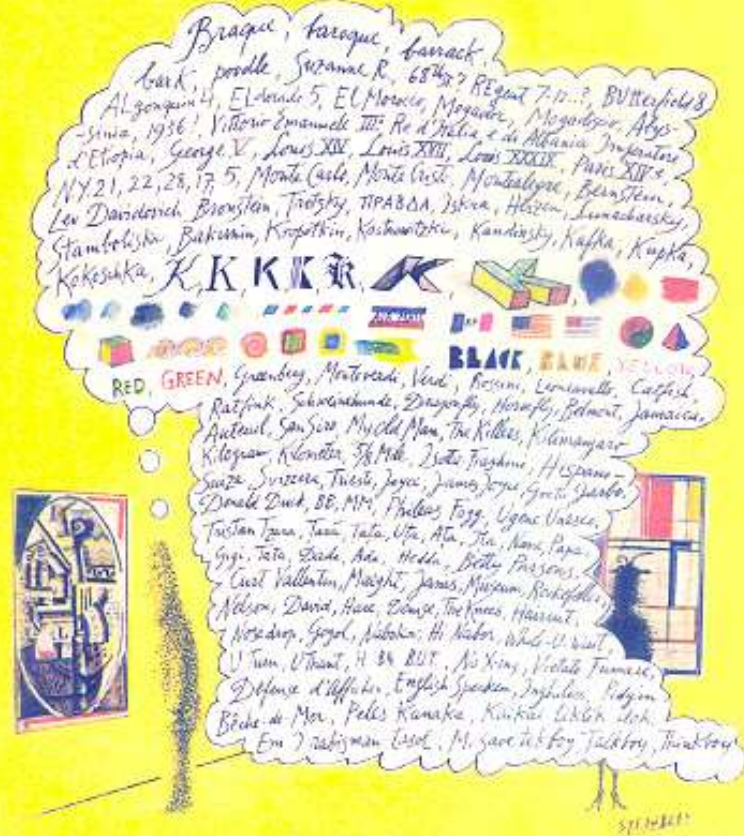 Braque, baroque, barrack,
bark, poodle, Suzanne R., 68th St? REgent 7-12..?, BUtterfield 8
ALgonquin 4, ELdorado 5, El Morocco, Mogador, Mogadiscio, Abys-
-sinia, 1936!, Vittorio Emanuele III: Re d'Italia e di Albania Imperatore
d'Etiopia, George V, Louis XIV, Louis XVII, Louis XXXIX, Paris XIVe,
NY 21, 22, 28, 17, 5, Monte Carlo, Monte Cristi, Montealegre, Bernstein,
Lev Davidovich Bronstein, Trotzky, ПРАВДА, Iskra, Herzen, Lunacharsky,
Stambolisky, Bakunin, Kropotkin, Kostrowitzky, Kandinsky, Kafka, Kupka,
Kokoschka, K, K, K, K, K, K
BLACK, BLUE, YELLOW
RED, GREEN, Greenberg, Monteverdi, Verdi, Rossini, Leoncavallo, Catfish,
Ratfink, Schweinehunde, Dragonfly, Horsefly, Belmont, Jamaica,
Auteuil, San Siro, My Old Man, The Killers, Kilimanjaro
Kilogram, Kilometer, 5/8 Mile, Isotta Fraschini, Hispano-
Suiza, Svizzera, Trieste, Joyce, James Joyce, Greta Garbo,
Donald Duck, BB, MM, Phileas Fogg, Ugene Unesco,
Tristan Tzara, Tara, Tata, Uta, Ata, Ita, Nana, Papa,
Gigi, Tata, Dada, Ada, Hedda, Betty Parsons,
Curt Vallentin, Maeght, Janis, Museum, Rockefeller,
Nelson, David, Hare, Danse, The Knees, Harriet,
Nosedrop, Gogol, Nabokov, Hi Nabor, Whale-U-Want,
U Turn, U Thant, No Xing, Vietato Fumare,
Défense d'Afficher, English Spoken, Pidgin
Bêche-de-Mer, Peles Kanaka, Kaikai Liklik
Talkboy, Thinkboy
STEINBERG